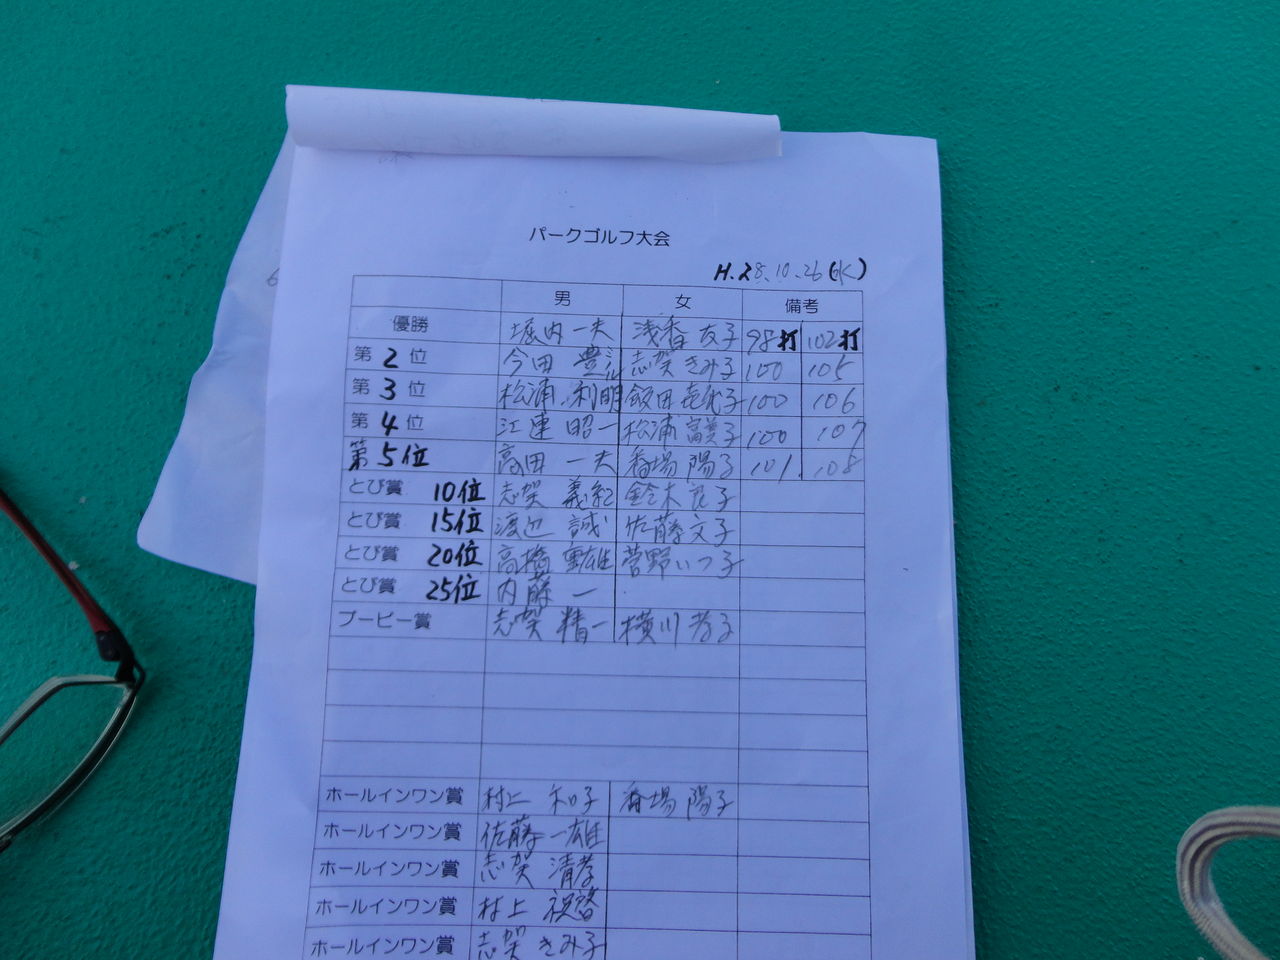 パークゴルフ大会
H.28.10.26(水)
男 女 備考
優勝 堀内 一夫 浅香 友子 98打 102打
第2位 今田 豊 志賀 きみ子 100 105
第3位 松浦 利明 飯田 喜代子 100 106
第4位 江連 昭一 松浦 富美子 100 107
第5位 高田 一夫 番場 陽子 101 108
とび賞 10位 志賀 義紀 鈴木 良子
とび賞 15位 渡辺 誠 佐藤 文子
とび賞 20位 高橋 重雄 菅野 いつ子
とび賞 25位 内藤 一
ブービー賞 志賀 精一 横川 孝子
ホールインワン賞 村上 和子 番場 陽子
ホールインワン賞 佐藤 一雄
ホールインワン賞 志賀 清孝
ホールインワン賞 村上
ホールインワン賞 志賀 きみ子